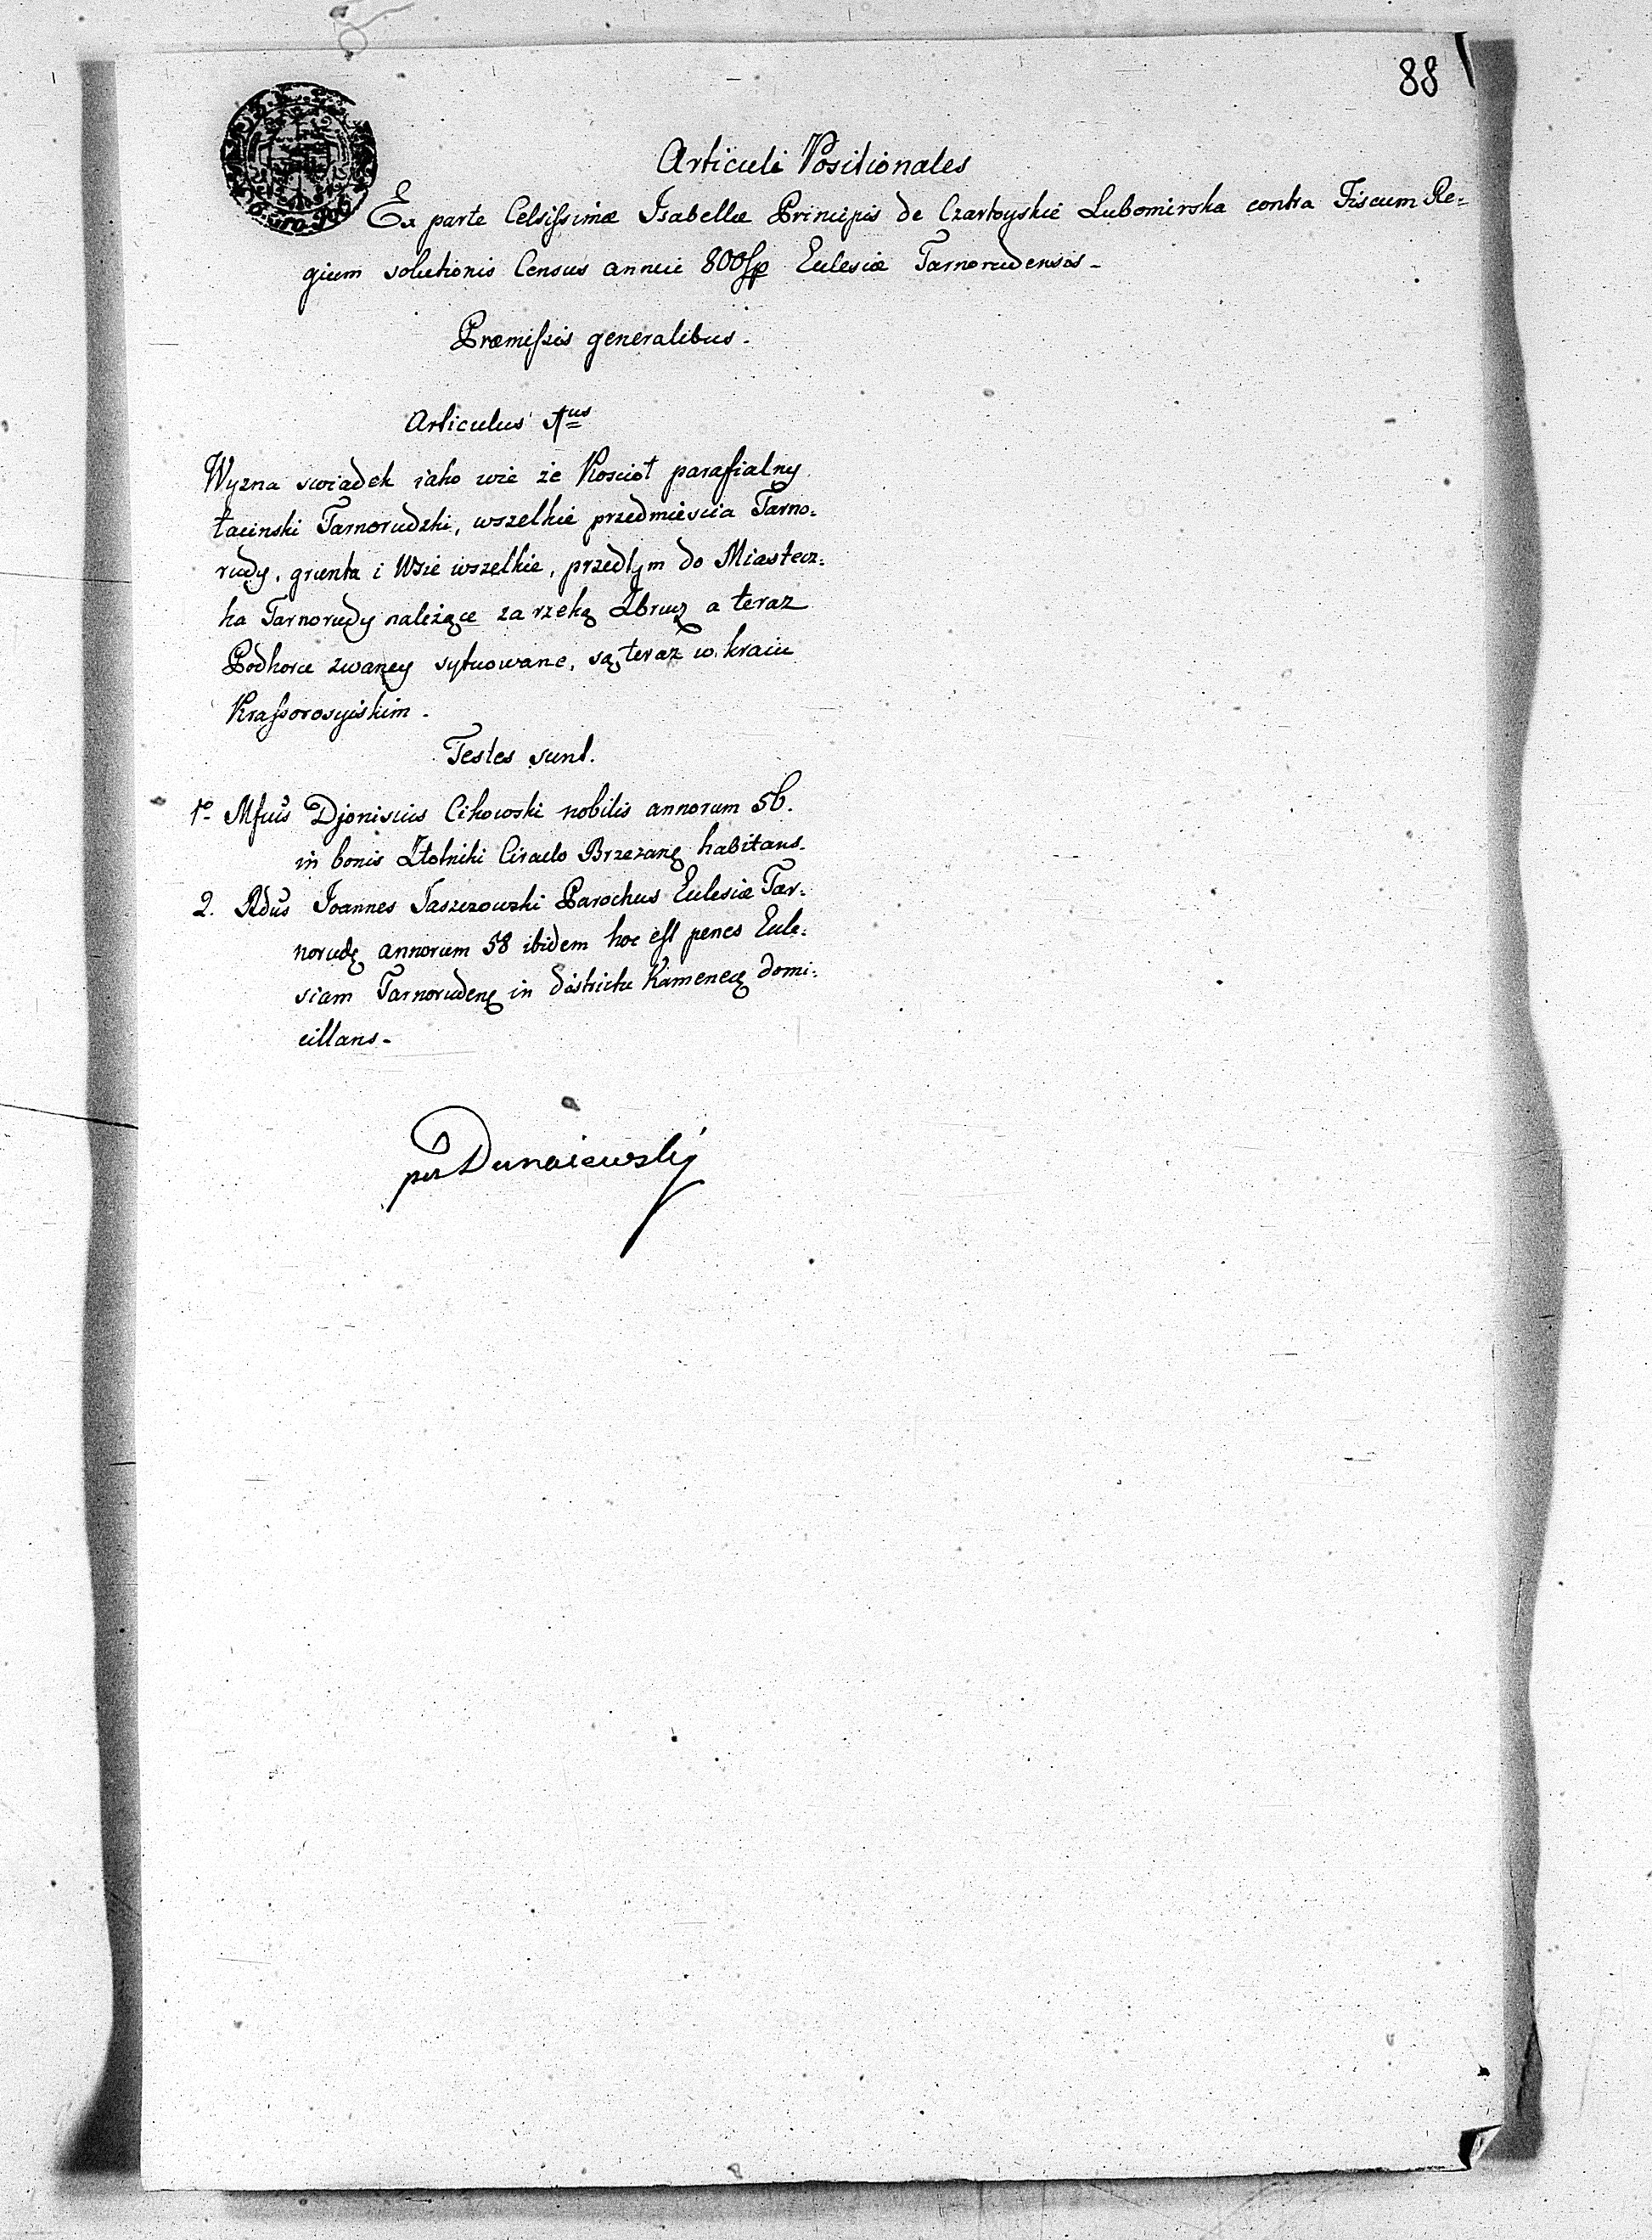 88
Articuli Positionales
Ex parte Celsissimæ Isabellæ Principis de Czartoyskie Lubomirska contra Fiscum Re=
gium solutionis Census annui 800 Eclesiæ Tarnorudensis -
Præmissis generalibus -
Articulus 1us
Wyzna swiadek iako wie że Koscioł parafialny
łacinski Tarnorudzki, wszelkie przedmieścia Tarno=
rudy, grunta i Wsie wszelkie, przedtym do Miastecz=
ka Tarnorudy należące za rzeką Zbrucz a teraz
Podhorce zwaney sytuowane, są teraz w kraiu
Krassorosyiskim -
Testes sunt.
1o Mfcus Djonisius Cikowski nobilis annorum 56.
in bonis Circulo Brzezanę habitans -
2. Rdus Joannes Taszczowski Parochus Eclesiæ Tar=
norudę annorum 58 ibidem hoc est penes Ecle=
siam Tarnorudenę in districtu Kamenecę domi=
cillans -
per Dunaiewski